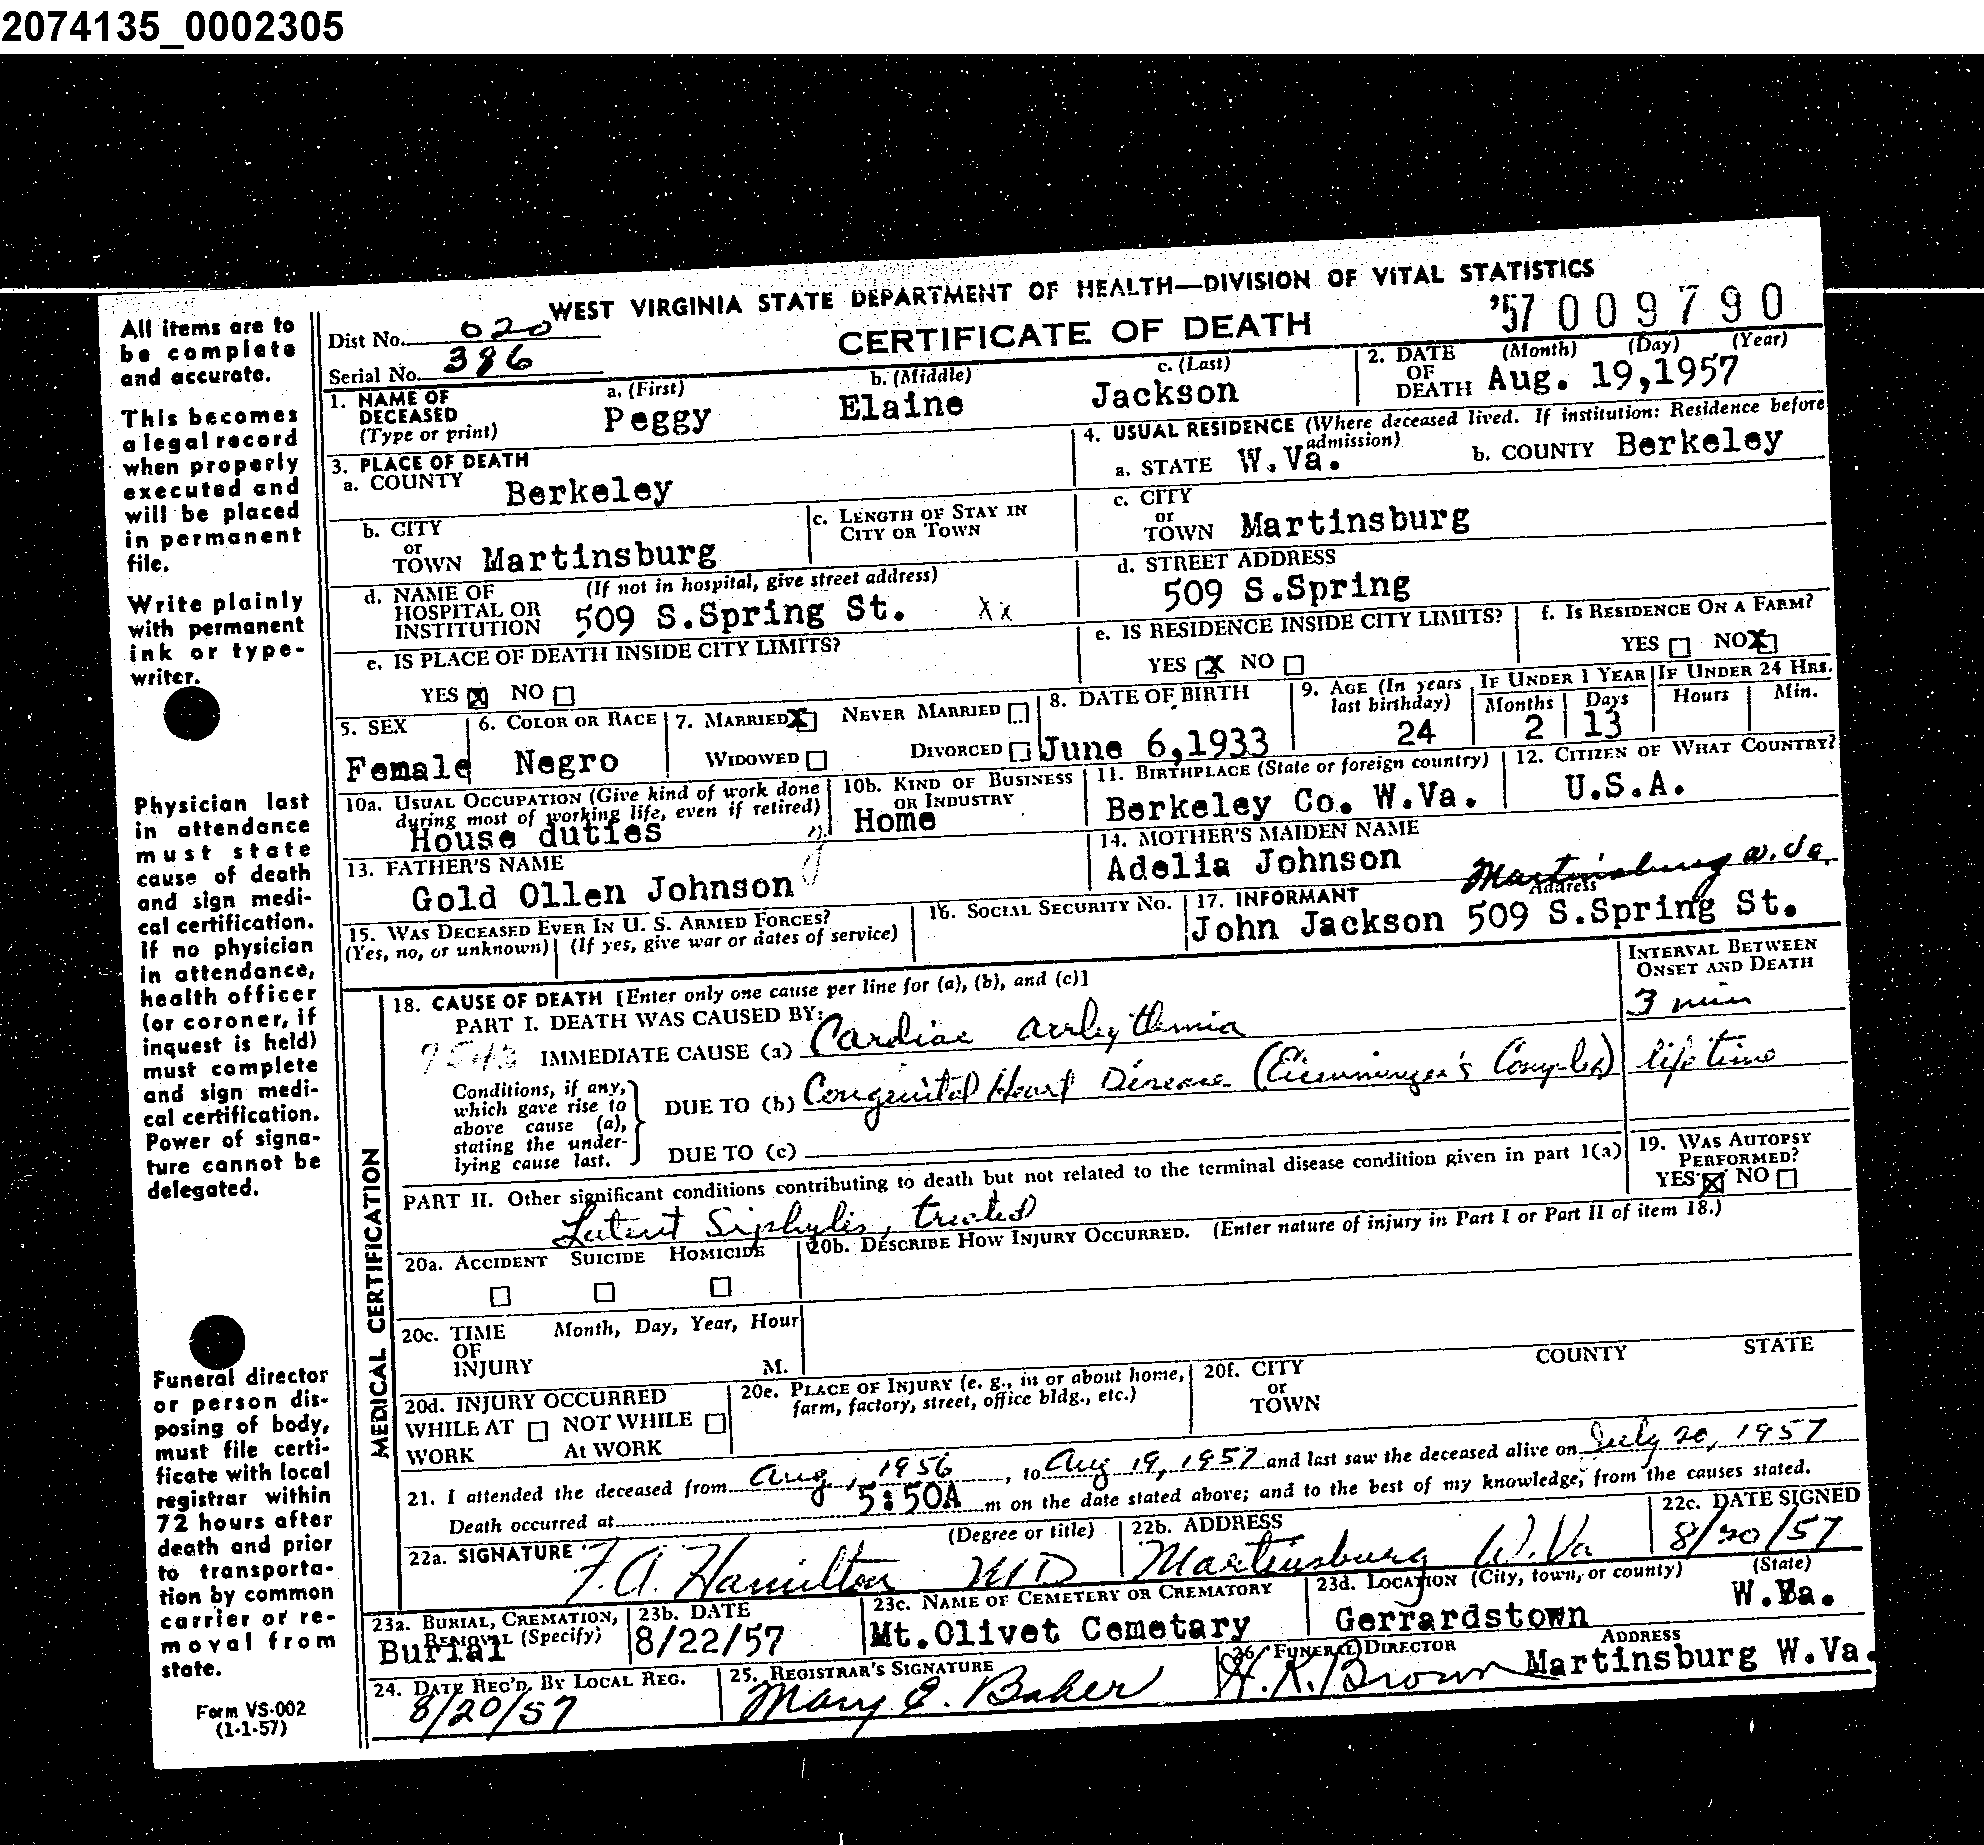 2074135_0002305
WEST VIRGINIA STATE DEPARTMENT OF HEALTH—DIVISION OF VITAL STATISTICS
CERTIFICATE OF DEATH
'57 009790
Dist No. 020
Serial No. 386
All items are to
be complete
and accurate.
This becomes
a legal record
when properly
executed and
will be placed
in permanent
file.
Write plainly
with permanent
ink or type-
writer.
Physician last
in attendance
must state
cause of death
and sign medi-
cal certification.
If no physician
in attendance,
health officer
(or coroner, if
inquest is held)
must complete
and sign medi-
cal certification.
Power of signa-
ture cannot be
delegated.
Funeral director
or person dis-
posing of body,
must file certi-
ficate with local
registrar within
72 hours after
death and prior
to transporta-
tion by common
carrier or re-
moval from
state.
Form VS-002
(1-1-57)
1. NAME OF DECEASED (Type or print)
a. (First) Peggy
b. (Middle) Elaine
c. (Last) Jackson
2. DATE OF DEATH (Month) (Day) (Year) Aug. 19,1957
3. PLACE OF DEATH
a. COUNTY Berkeley
b. CITY or TOWN Martinsburg
c. LENGTH OF STAY IN CITY OR TOWN
d. NAME OF HOSPITAL OR INSTITUTION (If not in hospital, give street address) 509 S.Spring St. Xx
e. IS PLACE OF DEATH INSIDE CITY LIMITS?
YES X NO
4. USUAL RESIDENCE (Where deceased lived. If institution: Residence before admission)
a. STATE W.Va.
b. COUNTY Berkeley
c. CITY or TOWN Martinsburg
d. STREET ADDRESS
509 S.Spring
e. IS RESIDENCE INSIDE CITY LIMITS?
YES X NO
f. IS RESIDENCE ON A FARM?
YES NO X
5. SEX
Female
6. COLOR OR RACE
Negro
7. MARRIED X NEVER MARRIED
WIDOWED DIVORCED
8. DATE OF BIRTH
June 6,1933
9. AGE (In years last birthday)
24
IF UNDER 1 YEAR
Months 2 Days 13
IF UNDER 24 HRS.
Hours Min.
10a. USUAL OCCUPATION (Give kind of work done during most of working life, even if retired)
House duties
10b. KIND OF BUSINESS OR INDUSTRY
Home
11. BIRTHPLACE (State or foreign country)
Berkeley Co. W.Va.
12. CITIZEN OF WHAT COUNTRY?
U.S.A.
13. FATHER'S NAME
Gold Ollen Johnson
14. MOTHER'S MAIDEN NAME
Adelia Johnson
15. WAS DECEASED EVER IN U. S. ARMED FORCES?
(Yes, no, or unknown) (If yes, give war or dates of service)
16. SOCIAL SECURITY NO.
17. INFORMANT Address
Martinsburg W.Va.
John Jackson 509 S.Spring St.
MEDICAL CERTIFICATION
18. CAUSE OF DEATH [Enter only one cause per line for (a), (b), and (c)]
INTERVAL BETWEEN ONSET AND DEATH
PART I. DEATH WAS CAUSED BY:
IMMEDIATE CAUSE (a) Cardiac arrhythmia 3 min
Conditions, if any, which gave rise to above cause (a), stating the underlying cause last.
DUE TO (b) Congenital Heart Disease (Eisenmenger's Complex) life time
DUE TO (c)
PART II. Other significant conditions contributing to death but not related to the terminal disease condition given in part 1(a)
Latent Siphylis, treated
19. WAS AUTOPSY PERFORMED?
YES X NO
20a. ACCIDENT SUICIDE HOMICIDE
20b. DESCRIBE HOW INJURY OCCURRED. (Enter nature of injury in Part I or Part II of item 18.)
20c. TIME OF INJURY Month, Day, Year, Hour M.
20d. INJURY OCCURRED
WHILE AT WORK NOT WHILE At WORK
20e. PLACE OF INJURY (e. g., in or about home, farm, factory, street, office bldg., etc.)
20f. CITY or TOWN COUNTY STATE
21. I attended the deceased from Aug, 1956, to Aug 19, 1957 and last saw the deceased alive on July 20, 1957
Death occurred at 5:50A m on the date stated above; and to the best of my knowledge, from the causes stated.
22a. SIGNATURE (Degree or title)
F.A. Hamilton MD
22b. ADDRESS
Martinsburg W.Va
22c. DATE SIGNED
8/20/57
23a. BURIAL, CREMATION, REMOVAL (Specify)
Burial
23b. DATE
8/22/57
23c. NAME OF CEMETERY OR CREMATORY
Mt.Olivet Cemetary
23d. LOCATION (City, town, or county) (State)
Gerrardstown W.Va.
24. DATE REC'D. BY LOCAL REG.
8/20/57
25. REGISTRAR'S SIGNATURE
Mary E. Baker
26. FUNERAL DIRECTOR ADDRESS
H.K. Brown Martinsburg W.Va.